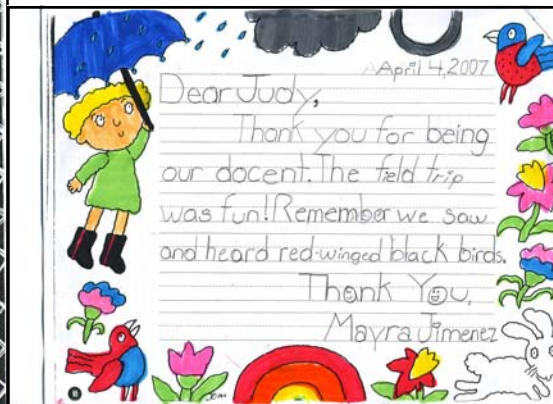 April 4, 2007
Dear Judy,
Thank you for being
our docent. The field trip
was fun! Remember we saw
and heard red-winged black birds.
Thank You,
Mayra Jimenez